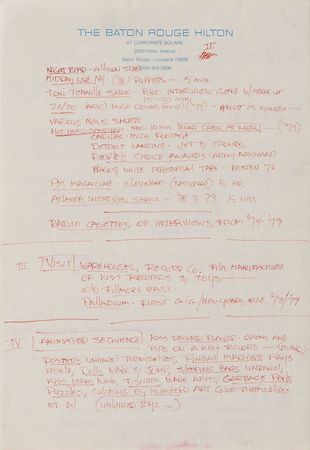 THE BATON ROUGE HILTON
AT CORPORATE SQUARE
5500 Hilton Avenue
Baton Rouge, Louisiana 70808
(504) 924-5000
II
NIGHT BIRD - ALISON STEELE
MIDDAY LIVE NY - ('78) PUPPETS - 5 MIN.
TONI TENNILLE SHOW - PILOT - INTERVIEW GENE W/ MAKE UP
15-20 MIN.
20/20 (ABC) HUGH DOWNS (HOST) ('79) - ABOUT 15 MINUTES -
VARIOUS NEWS SHORTS
ROAD CREW AT WORK - ('79)
CADILLAC - MICH FOOTAGE
DETROIT LANDING - JET & CROWDS
PEOPLE'S CHOICE AWARDS - ARMY ARCHARD
BLACK & WHITE REHEARSAL TAPE - BOSTON '76
PM MAGAZINE - CLEVELAND (NATIONAL) ½ HR.
ATLANTA INTERVIEW SHOWS - '78 & '79 ½ HRS
RADIO CASSETTES OF INTERVIEWS FROM '74-'79
III VISIT WAREHOUSES, RECORD CO., FILM MANUFACTURE
OF KISS RECORDS & TOYS -
OLD FILLMORE EAST -
PALLADIUM - FIRST GIG / NEW YEARS EVE '73/'74
IV ANIMATED SEQUENCE KISS RECORD PLAYER OPENS AND
PUTS ON A KISS RECORD - (MUSIC)
POSTERS UNRAVEL THEMSELVES, PINBALL MACHINE PLAYS
ITSELF, DOLLS WALK & JUMP, SLEEPING BAGS UNRAVEL,
KISS JEANS WALK, T-SHIRTS WAVE ARMS, GARBAGE PAILS,
PUZZLES, COLORING BY NUMBERS ART COLOR THEMSELVES
ET AL (UNLIMITED TOYS...)